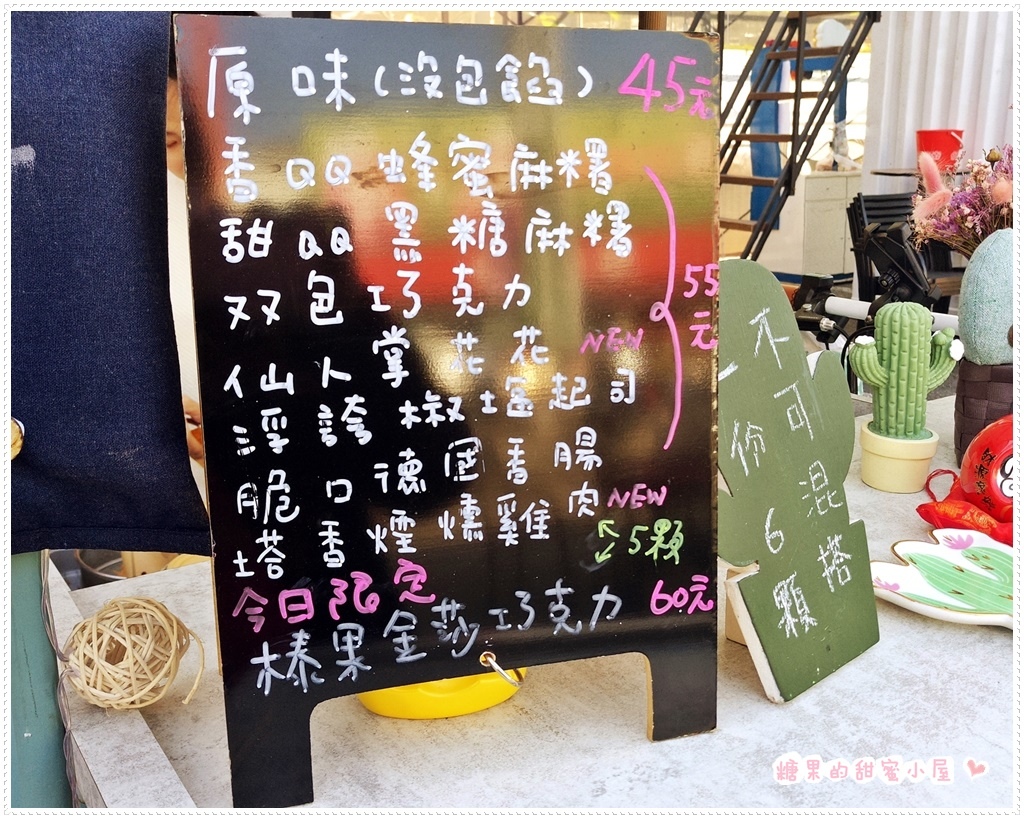 原味(沒包餡) 45元
香QQ蜂蜜麻糬
甜QQ黑糖麻糬
双包巧克力
仙人掌花花 NEW
浮誇椒塩起司
脆口德國香腸
塔香煙燻雞肉 NEW
55元
5顆
今日限定 60元
榛果金莎巧克力
一份6顆
不可混搭
糖果的甜蜜小屋